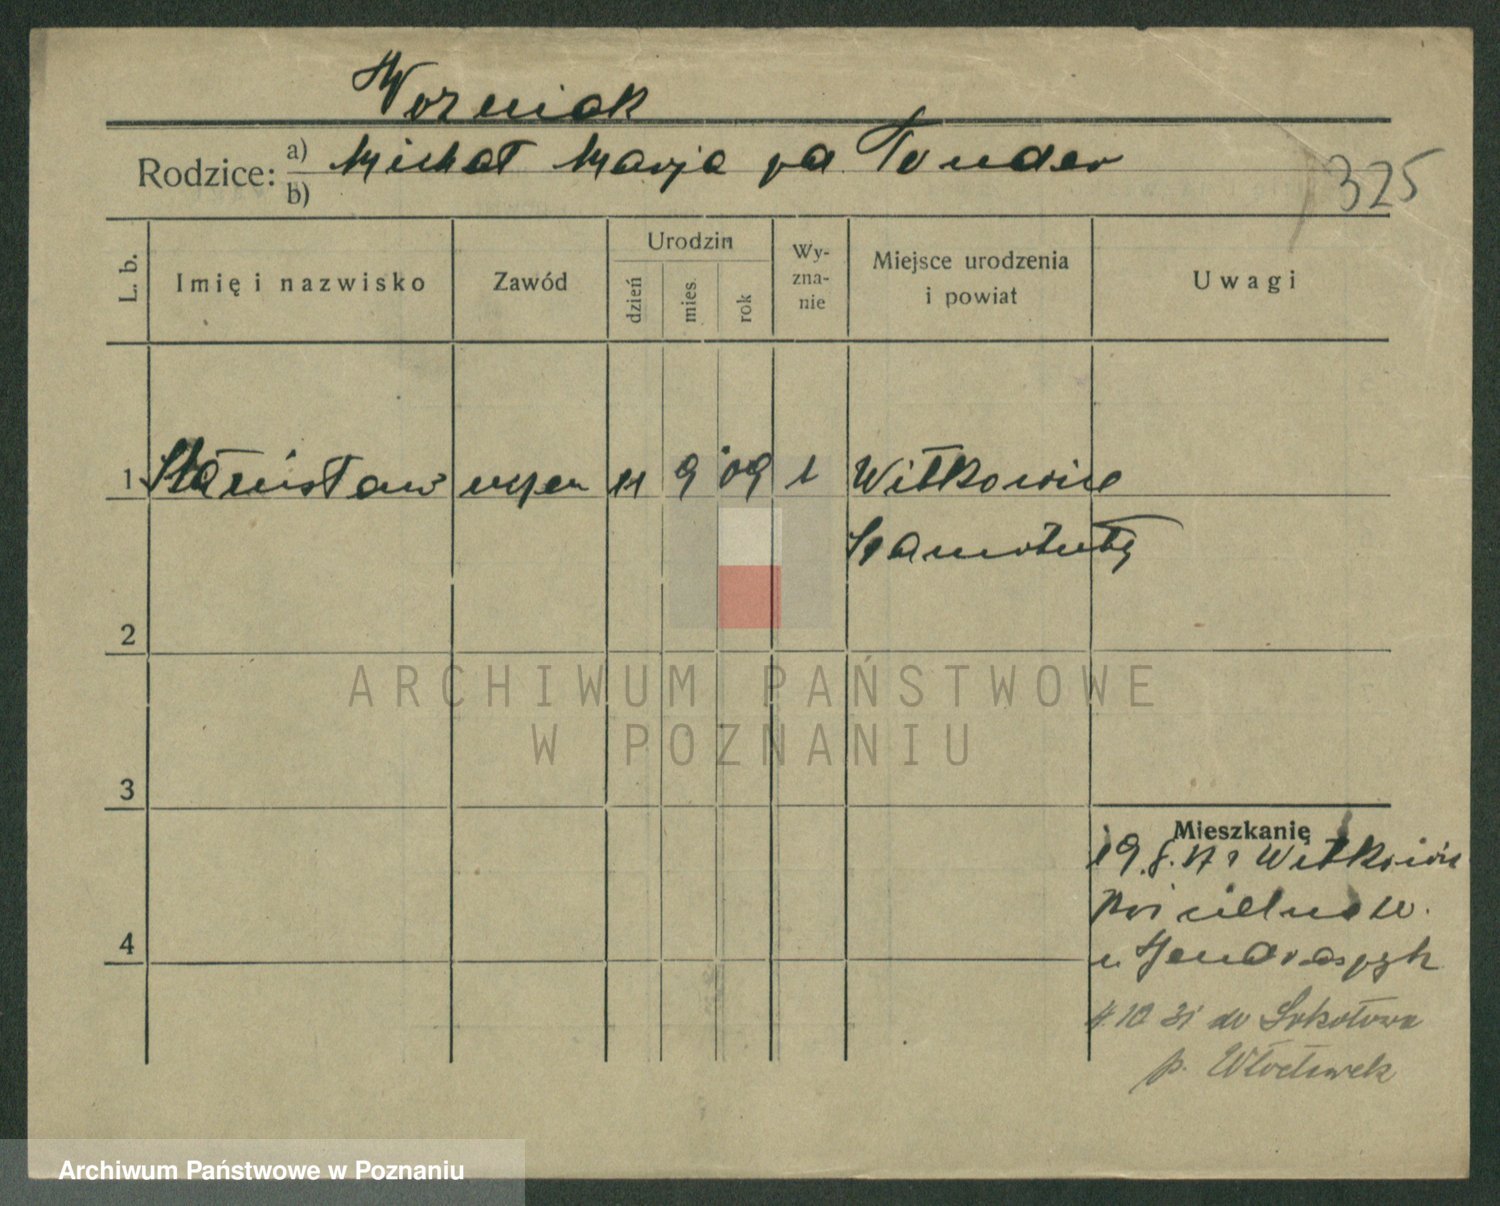 Wozniak
Rodzice: a) Michał Marja pd Tonder
b)
325
L. b.
Imię i nazwisko
Zawód
Urodzin
dzień
mies.
rok
Wy-
zna-
nie
Miejsce urodzenia
i powiat
Uwagi
1 Stanisław uczeń 11 9 09 k Witkowice
Szamotuły
2
3
4
Mieszkanie
19. Witkowic
u
4.10 31 do Sokołowa
p. Włocławek
ARCHIWUM PAŃSTWOWE
W POZNANIU
Archiwum Państwowe w Poznaniu